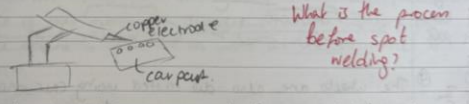 copper
electrode
car part.
What is the process
before spot
welding?